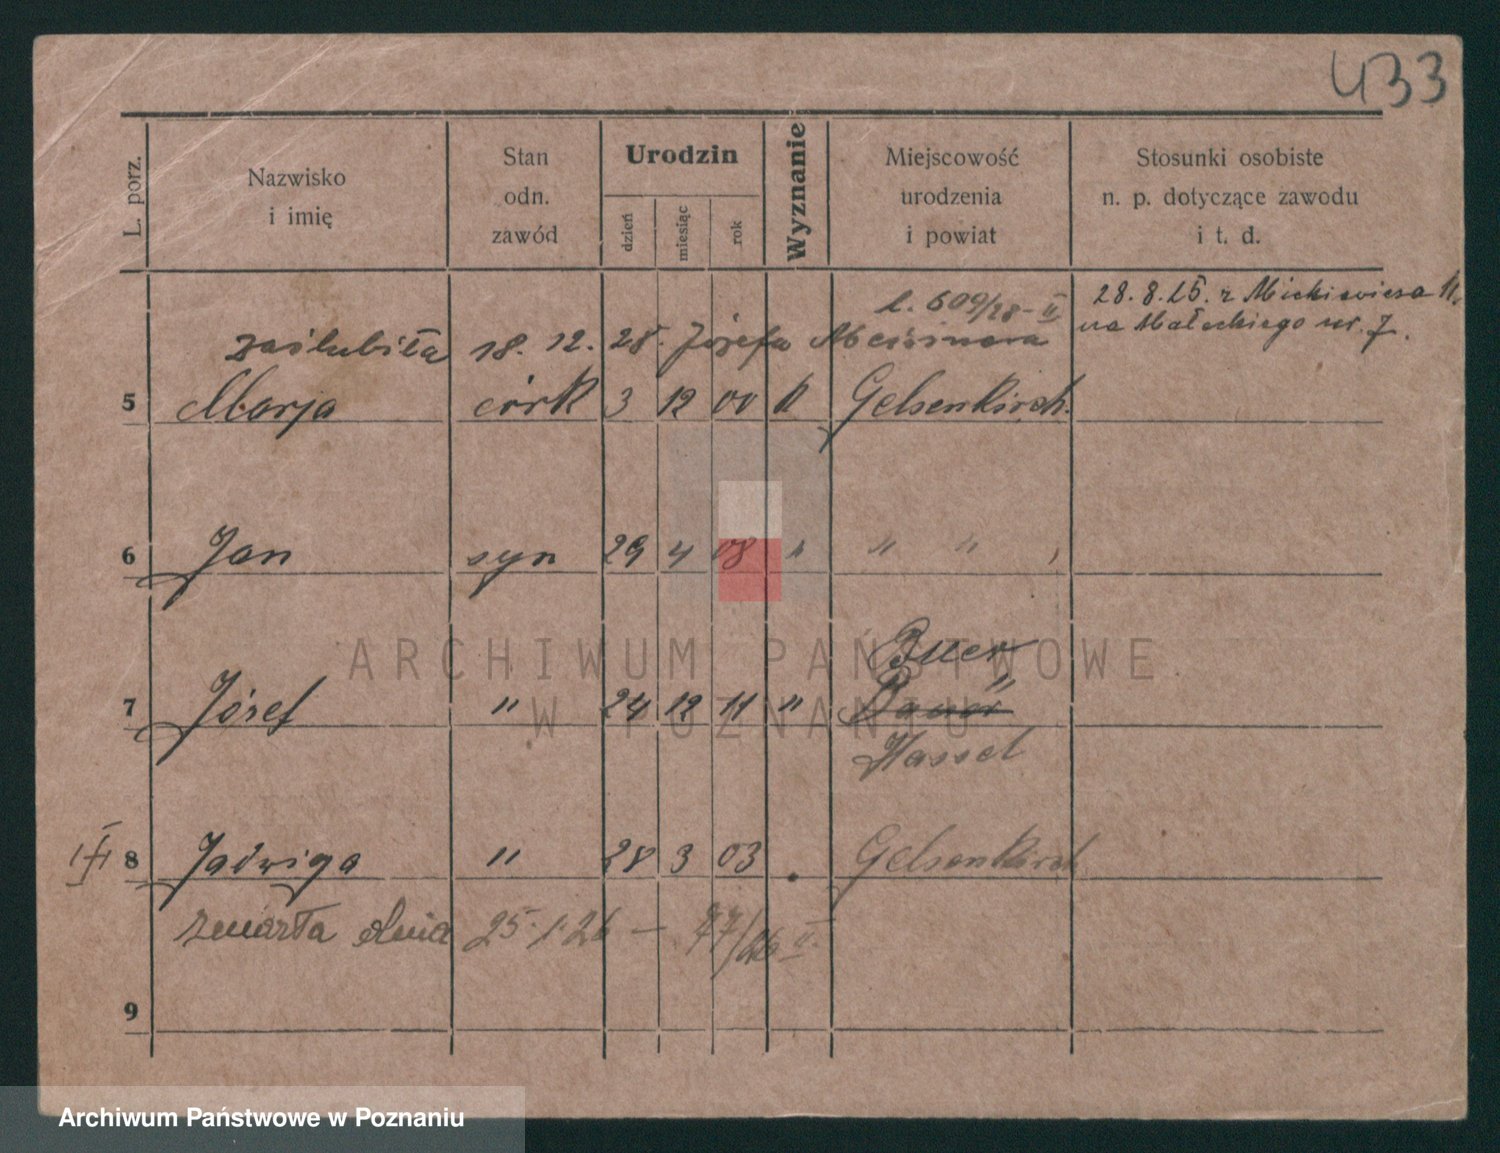 433
L. porz.
Nazwisko
i imię
Stan
odn.
zawód
Urodzin
dzień
miesiąc
rok
Wyznanie
Miejscowość
urodzenia
i powiat
Stosunki osobiste
n. p. dotyczące zawodu
i t. d.
l. 609/28-II
28.8.25. z Mickiewicza 11.
na Małeckiego nr. 7.
zaślubiła 18. 12. 28. Józefa
5 Marja córk 3 12 00 k Gelsenkirch.
6 Jan syn 29 4 08 " " "
Buer
7 Józef " 24 12 11 " "
Hassel
8 Jadwiga " 28 3 03 Gelsenkirch
zmarła dnia 25.1.26 – 77/26 II.
9
ARCHIWUM PAŃSTWOWE
W POZNANIU
Archiwum Państwowe w Poznaniu